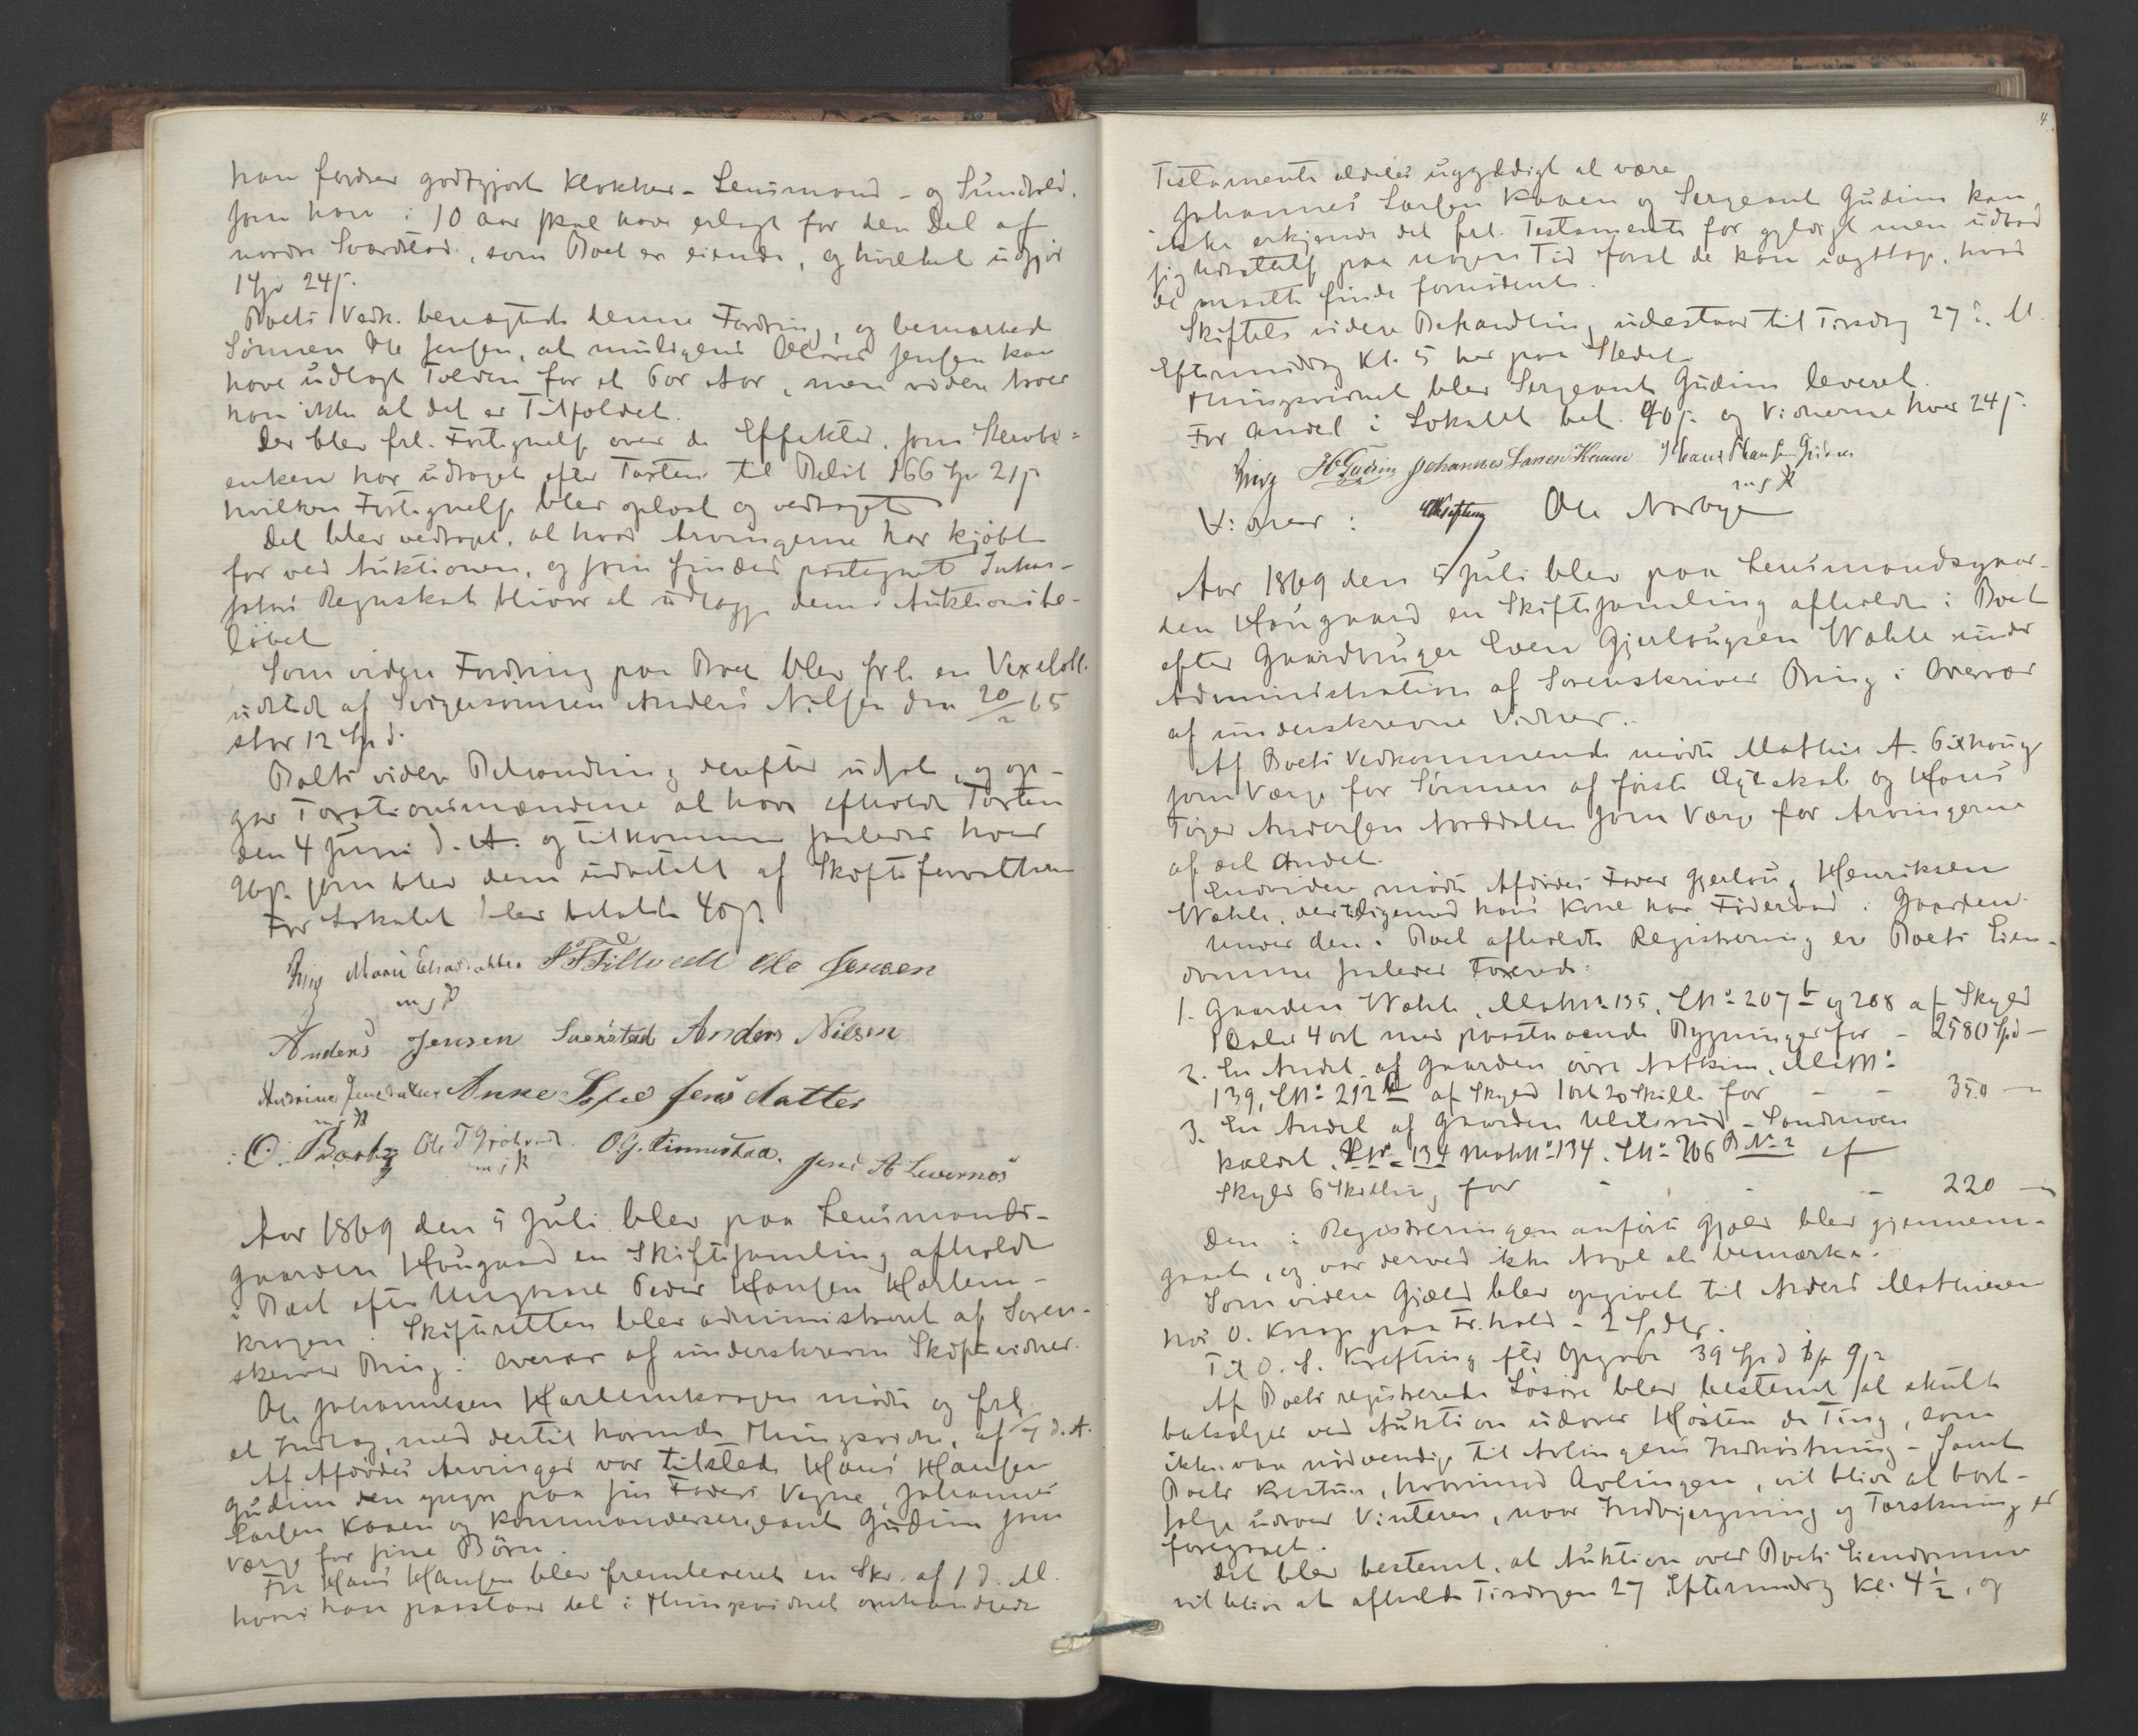 han fordrer godtgjort Klokker- Lensmand- og Sundtold.
som han i 10 Aar skal have erlagt for den Del af
nordre Sværdstad, som Boet er eiende, og hvilket udgjør
14 24
Boets Vedk. benægtede denne Fordring, og bemærked
Sønnen Ole Jensen, at muligens Jensen kan
have udlagt Tolden for et Par Aar, men videre troer
han ikke at det er Tilfældet.
Der blev frl. Fortegnelse over de Effekter, som Stervbo-
enken har udtaget efter Taxten til Beløb 166 Sp 21
hvilken Fortegnelse blev oplæst og vedtaget
Det blev vedtaget, at hvad Arvingerne har kjøbt
for ved Auktionen, og som findes paategnet Inkas-
sators Regnskab bliver at udlægge dem i Auktionsbe-
løbet
Som videre Fordring paa Boet blev frl. en Vexelobl.
udstedt af Svigersønnen Anders Nilsen den 20/2 65
stor 12 Spd.
Boets videre Behandling derefter udsat, og op-
gav Taxationsmændene at have afholdt Taxten
den 4 Juni d. A. og tilkommer saaledes hver
96 som blev dem udbetalt af Skifteforvalteren
For Lokalet blev betalt 40
Bing Mari Ole Jensen
m s P
Anders Jensen Sverstad Anders Nilsen
Jensdatter Anne Sofie Jens datter
m s P
O. Baaby Ole T O.G. Finnestad. Jens A Levernæs
m s P
Aar 1869 den 5 Juli blev paa Lensmands-
gaarden Hougaard en Skiftesamling afholdt
i Boet efter Ungkarl Peder Hansen Harlem-
krogen. Skifteretten blev administreret af Soren-
skriver Bing i Overvær af underskrevne Skiftevidner.
Ole Johannesen Harlemkrogen mødte og frl.
et Indlæg, med dertil hørende Thingsvidne, af d. A.
Af Afdødes Arvinger var tilstede Hans Hansen
Gudim den yngre paa sin Faders Vegne, Johannes
Larsen Kaaen og Kommandersergeant Gudim som
Værge for sine Børn.
Fra Hans Hansen blev fremleveret en Skr. af 1 d. M.
hvori han paastaar det i Thingsvidnet omhandlede
4
Testamente aldeles ugyldigt at være
Johannes Larsen Kaaen og Sergeant Gudim kan
ikke erkjende det frl. Testamente for gyldigt men udbad
sig Udsættelse paa nogen Tid forat de kan iagttage, hvad
de maatte finde fornødent.
Skiftets videre Behandling udestaar til Tirsdag 27 d. M.
Eftermiddag Kl. 5 her paa Stedet.
Thingsvidnet blev Sergeant Gudim leveret.
For Andel i Lokalet bet. 40 og Vidnerne hver 24
Bing H Gudim Johannes Larsen Kaaen Hans Hansen Gudim
m s P
Vidner: Krefting Ole Norbye
Aar 1869 den 5 Juli blev paa Lensmandsgaar-
den Hougaard en Skiftesamling afholdt i Boet
efter Gaardbruger Even Gjerlougsen Wæhle under
Administration af Sorenskriver Bing i Overvær
af underskrevne Vidner.
Af Boets Vedkommende mødte Mathis A.
som Værge for Sønnen af første Egteskab og Hans
Andersen Norddalen som Værge for Arvingerne
af det Andet.
Endvidere mødte Afdødes Fader Gjerloug Henriksen
Wæhle, der tilligemed hans Kone har Føderaad i Gaarden.
Under den i Boet afholdte Registrering er Boets Eien-
domme saaledes Taxerede:
1. Gaarden Wæhle, Mat No 135, L No 207 b og 208 af Skyld
1 Daler 4 ort med paastaaende Bygninger for - 2580 Spd -
2. En Andel af Gaarden øvre , Mat No
139, L No 212 b af Skyld 1 ort 20 Skill. for - - 350 -
3. En Andel af Gaarden Ulilsrud - Sandmoen
kaldet, L No 134 Mat No 134. L No 206 B No 2 af
Skyld 6 Skilling for - - - 220 -
Den i Registreringen anførte Gjæld blev gjennem-
gaaet, og var derved ikke Noget at bemærke.
Som videre Gjæld blev opgivet til Anders Mathiesen
hos O. Krog paa Fr.hald - 2 Spdlr.
Til O. S. Krefting flg Opgave 39 Spd 9
Af Boets registrerede Løsøre blev bestemt at skulle
bortsælges ved Auktion udover Høsten de Ting, som
ikke var nødvendige til Avlingens Indhøstning - Samt
Boets Kreatur, hvorimod Avlingen, vil blive at bort-
sælge udover Vinteren, naar Indbjergning og Tærskning er
foregaaet.
Det blev bestemt, at Auktion over Boets Eiendomme
vil blive at afholde Tirsdagen 27 Eftermiddag Kl. 4½, og